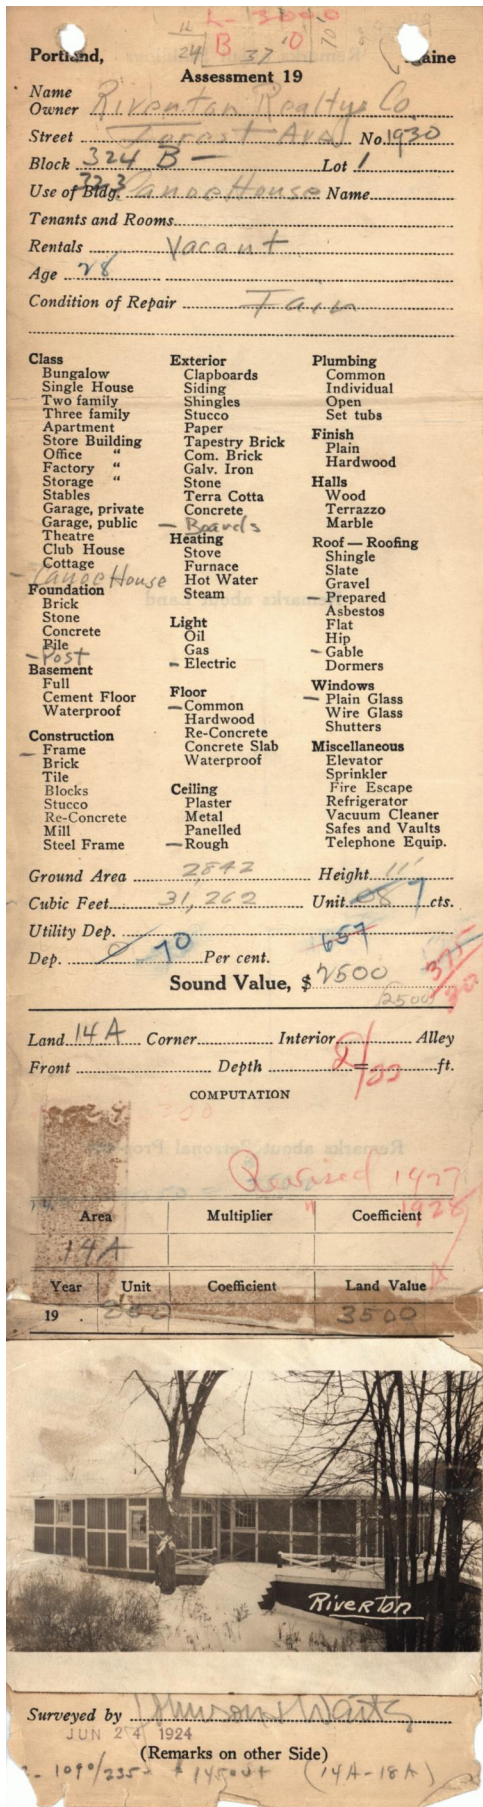 L- 3000
12
24 B 37 0 70
Portland, Maine
Assessment 19
Name
Owner Riverton Realty Co
Street Forest Ave No. 1930
Block 324 B — Lot 1
323
Use of Bldg. Canoe House Name
Tenants and Rooms
Rentals Vacant
Age 28
Condition of Repair Fair
Class
Bungalow
Single House
Two family
Three family
Apartment
Store Building
Office "
Factory "
Storage "
Stables
Garage, private
Garage, public
Theatre
Club House
Cottage
- Canoe House
Foundation
Brick
Stone
Concrete
Pile
- Post
Basement
Full
Cement Floor
Waterproof
Construction
- Frame
Brick
Tile
Blocks
Stucco
Re-Concrete
Mill
Steel Frame
Exterior
Clapboards
Siding
Shingles
Stucco
Paper
Tapestry Brick
Com. Brick
Galv. Iron
Stone
Terra Cotta
Concrete
- Boards
Heating
Stove
Furnace
Hot Water
Steam
Light
Oil
Gas
- Electric
Floor
- Common
Hardwood
Re-Concrete
Concrete Slab
Waterproof
Ceiling
Plaster
Metal
Panelled
- Rough
Plumbing
Common
Individual
Open
Set tubs
Finish
Plain
Hardwood
Halls
Wood
Terrazzo
Marble
Roof — Roofing
Shingle
Slate
Gravel
- Prepared
Asbestos
Flat
Hip
- Gable
Dormers
Windows
- Plain Glass
Wire Glass
Shutters
Miscellaneous
Elevator
Sprinkler
Fire Escape
Refrigerator
Vacuum Cleaner
Safes and Vaults
Telephone Equip.
Ground Area 2842 Height 11'
Cubic Feet 31,262 Unit 08 7 cts.
Utility Dep.
Dep. 0 70 Per cent. 657
Sound Value, $ 2500 375
2500
Land 14 A Corner Interior Alley
Front Depth = ft.
COMPUTATION
Revised 1927
" 1928
Area Multiplier Coefficient
14 A
Year Unit Coefficient Land Value
19 3500
Riverton
Surveyed by Johnson &
JUN 24 1924
(Remarks on other Side)
(14A-18A)